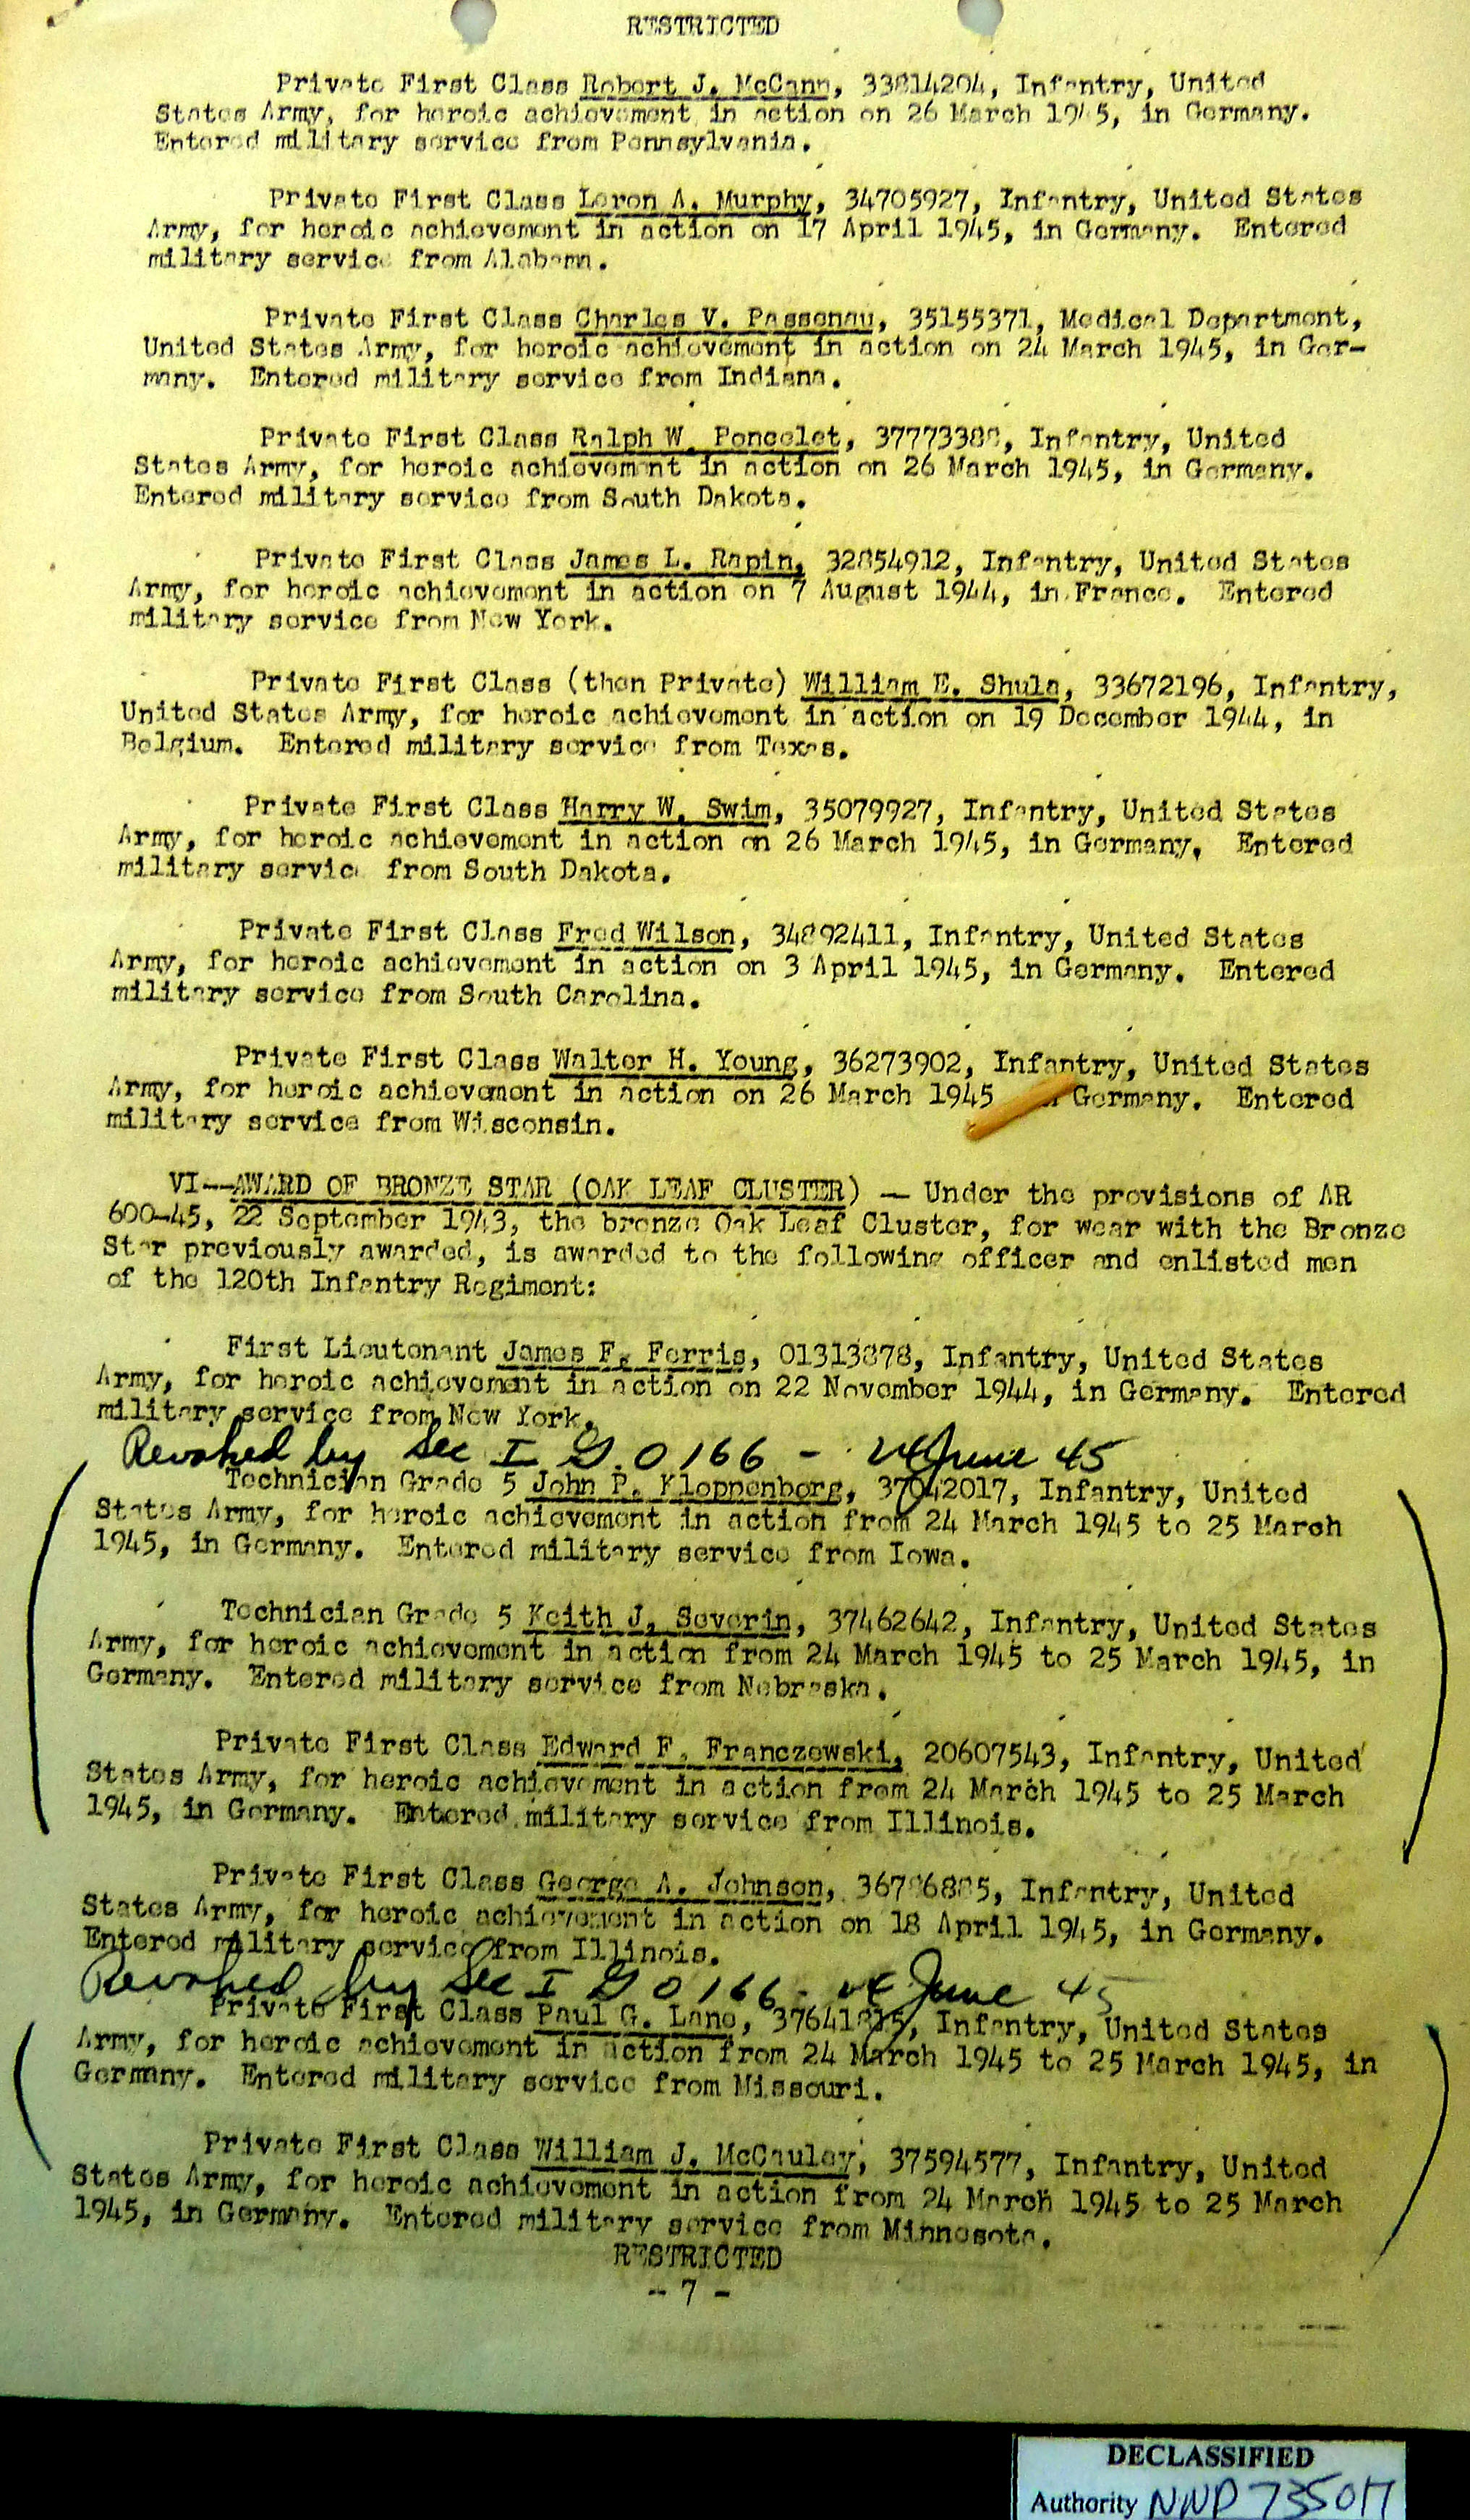 RESTRICTED
Private First Class Robert J. McCann, 33814204, Infantry, United
States Army, for heroic achievement in action on 26 March 1945, in Germany.
Entered military service from Pennsylvania.
Private First Class Loron A. Murphy, 34705927, Infantry, United States
Army, for heroic achievement in action on 17 April 1945, in Germany. Entered
military service from Alabama.
Private First Class Charles V. Passenau, 35155371, Medical Department,
United States Army, for heroic achievement in action on 24 March 1945, in Ger-
many. Entered military service from Indiana.
Private First Class Ralph W. Poncelet, Infantry, United
States Army, for heroic achievement in action on 26 March 1945, in Germany.
Entered military service from South Dakota.
Private First Class James L. Rapin, 32854912, Infantry, United States
Army, for heroic achievement in action on 7 August 1944, in France. Entered
military service from New York.
Private First Class (then Private) William E. Shula, 33672196, Infantry,
United States Army, for heroic achievement in action on 19 December 1944, in
Belgium. Entered military service from Texas.
Private First Class Harry W. Swim, 35079927, Infantry, United States
Army, for heroic achievement in action on 26 March 1945, in Germany. Entered
military service from South Dakota.
Private First Class Fred Wilson, 34892411, Infantry, United States
Army, for heroic achievement in action on 3 April 1945, in Germany. Entered
military service from South Carolina.
Private First Class Walter H. Young, 36273902, Infantry, United States
Army, for heroic achievement in action on 26 March 1945 Germany. Entered
military service from Wisconsin.
VI--AWARD OF BRONZE STAR (OAK LEAF CLUSTER) — Under the provisions of AR
600-45, 22 September 1943, the bronze Oak Leaf Cluster, for wear with the Bronze
Star previously awarded, is awarded to the following officer and enlisted men
of the 120th Infantry Regiment:
First Lieutenant James F. Ferris, 01313878, Infantry, United States
Army, for heroic achievement in action on 22 November 1944, in Germany. Entered
military service from New York.
Revoked by Sec I G.O 166 - 24 June 45
Technician Grade 5 John P. Kloppenborg, 37042017, Infantry, United
States Army, for heroic achievement in action from 24 March 1945 to 25 March
1945, in Germany. Entered military service from Iowa.
Technician Grade 5 Keith J. Severin, 37462642, Infantry, United States
Army, for heroic achievement in action from 24 March 1945 to 25 March 1945, in
Germany. Entered military service from Nebraska.
Private First Class Edward F. Franczewski, 20607543, Infantry, United
States Army, for heroic achievement in action from 24 March 1945 to 25 March
1945, in Germany. Entered military service from Illinois.
Private First Class George A. Johnson, Infantry, United
States Army, for heroic achievement in action on 18 April 1945, in Germany.
Entered military service from Illinois.
Revoked by Sec I G O 166 - 24 June 45
Private First Class Paul G. Lane, Infantry, United States
Army, for heroic achievement in action from 24 March 1945 to 25 March 1945, in
Germany. Entered military service from Missouri.
Private First Class William J. McCauley, 37594577, Infantry, United
States Army, for heroic achievement in action from 24 March 1945 to 25 March
1945, in Germany. Entered military service from Minnesota.
RESTRICTED
- 7 -
DECLASSIFIED
Authority NND 735017